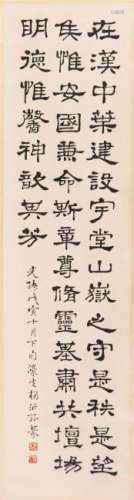 在漢中葉建設宇堂山嶽之守是秩是望
侯惟安國兼命斯章尊脩靈基肅共壇場
明德惟馨神歆其芳
光緒戊寅十月下旬濠叟楊沂孫